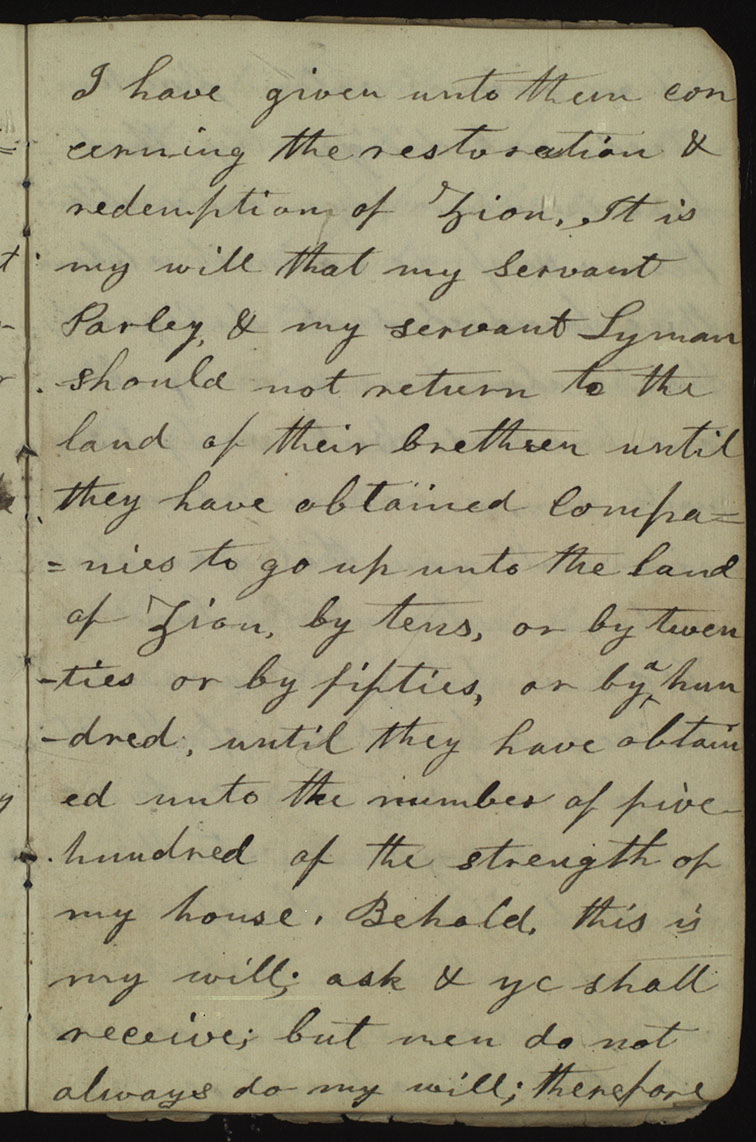 I have given unto them con
cerning the restoration &
redemption of Zion. It is
my will that my Servant
Parley, & my servant Lyman
should not return to the
land of their brethren until
they have obtained Compa=
=nies to go up unto the land
of Zion, by tens, or by twen
-ties or by fifties, or by a hun
-dred, until they have obtain
ed unto the number of five
hundred of the strength of
my house. Behold, this is
my will; ask & ye shall
receive; but men do not
always do my will; therefore